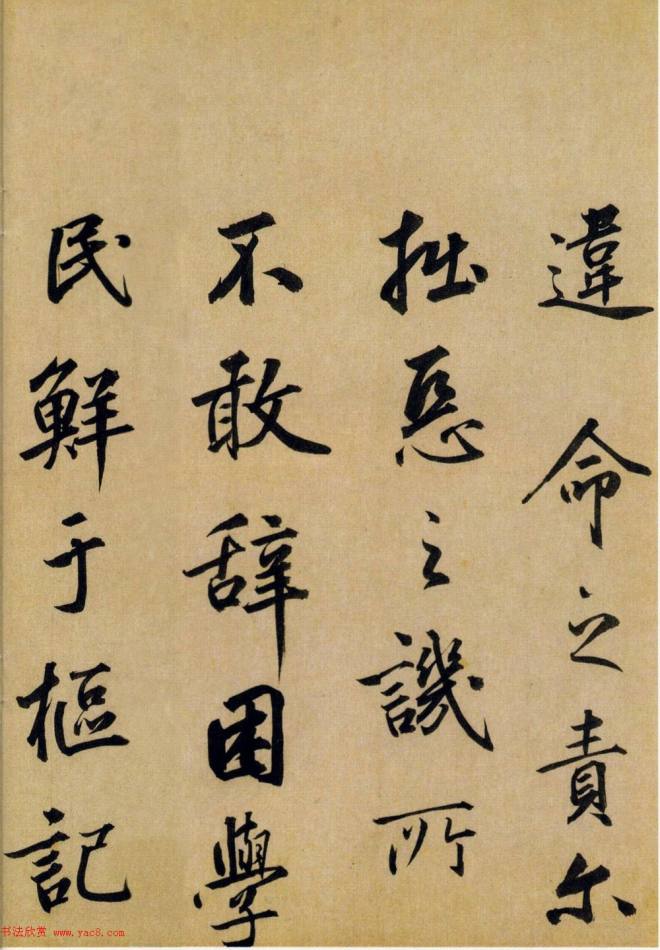 違命之責尔
拙惡之譏所
不敢辞困學
民鮮于樞記
书法欣赏 www.yac8.com